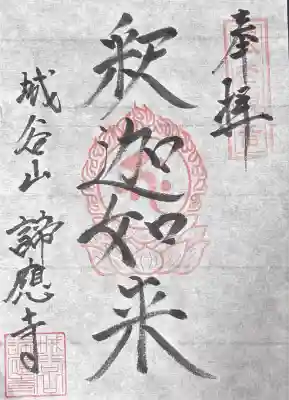 奉拝
釈迦如来
城谷山 諦應寺